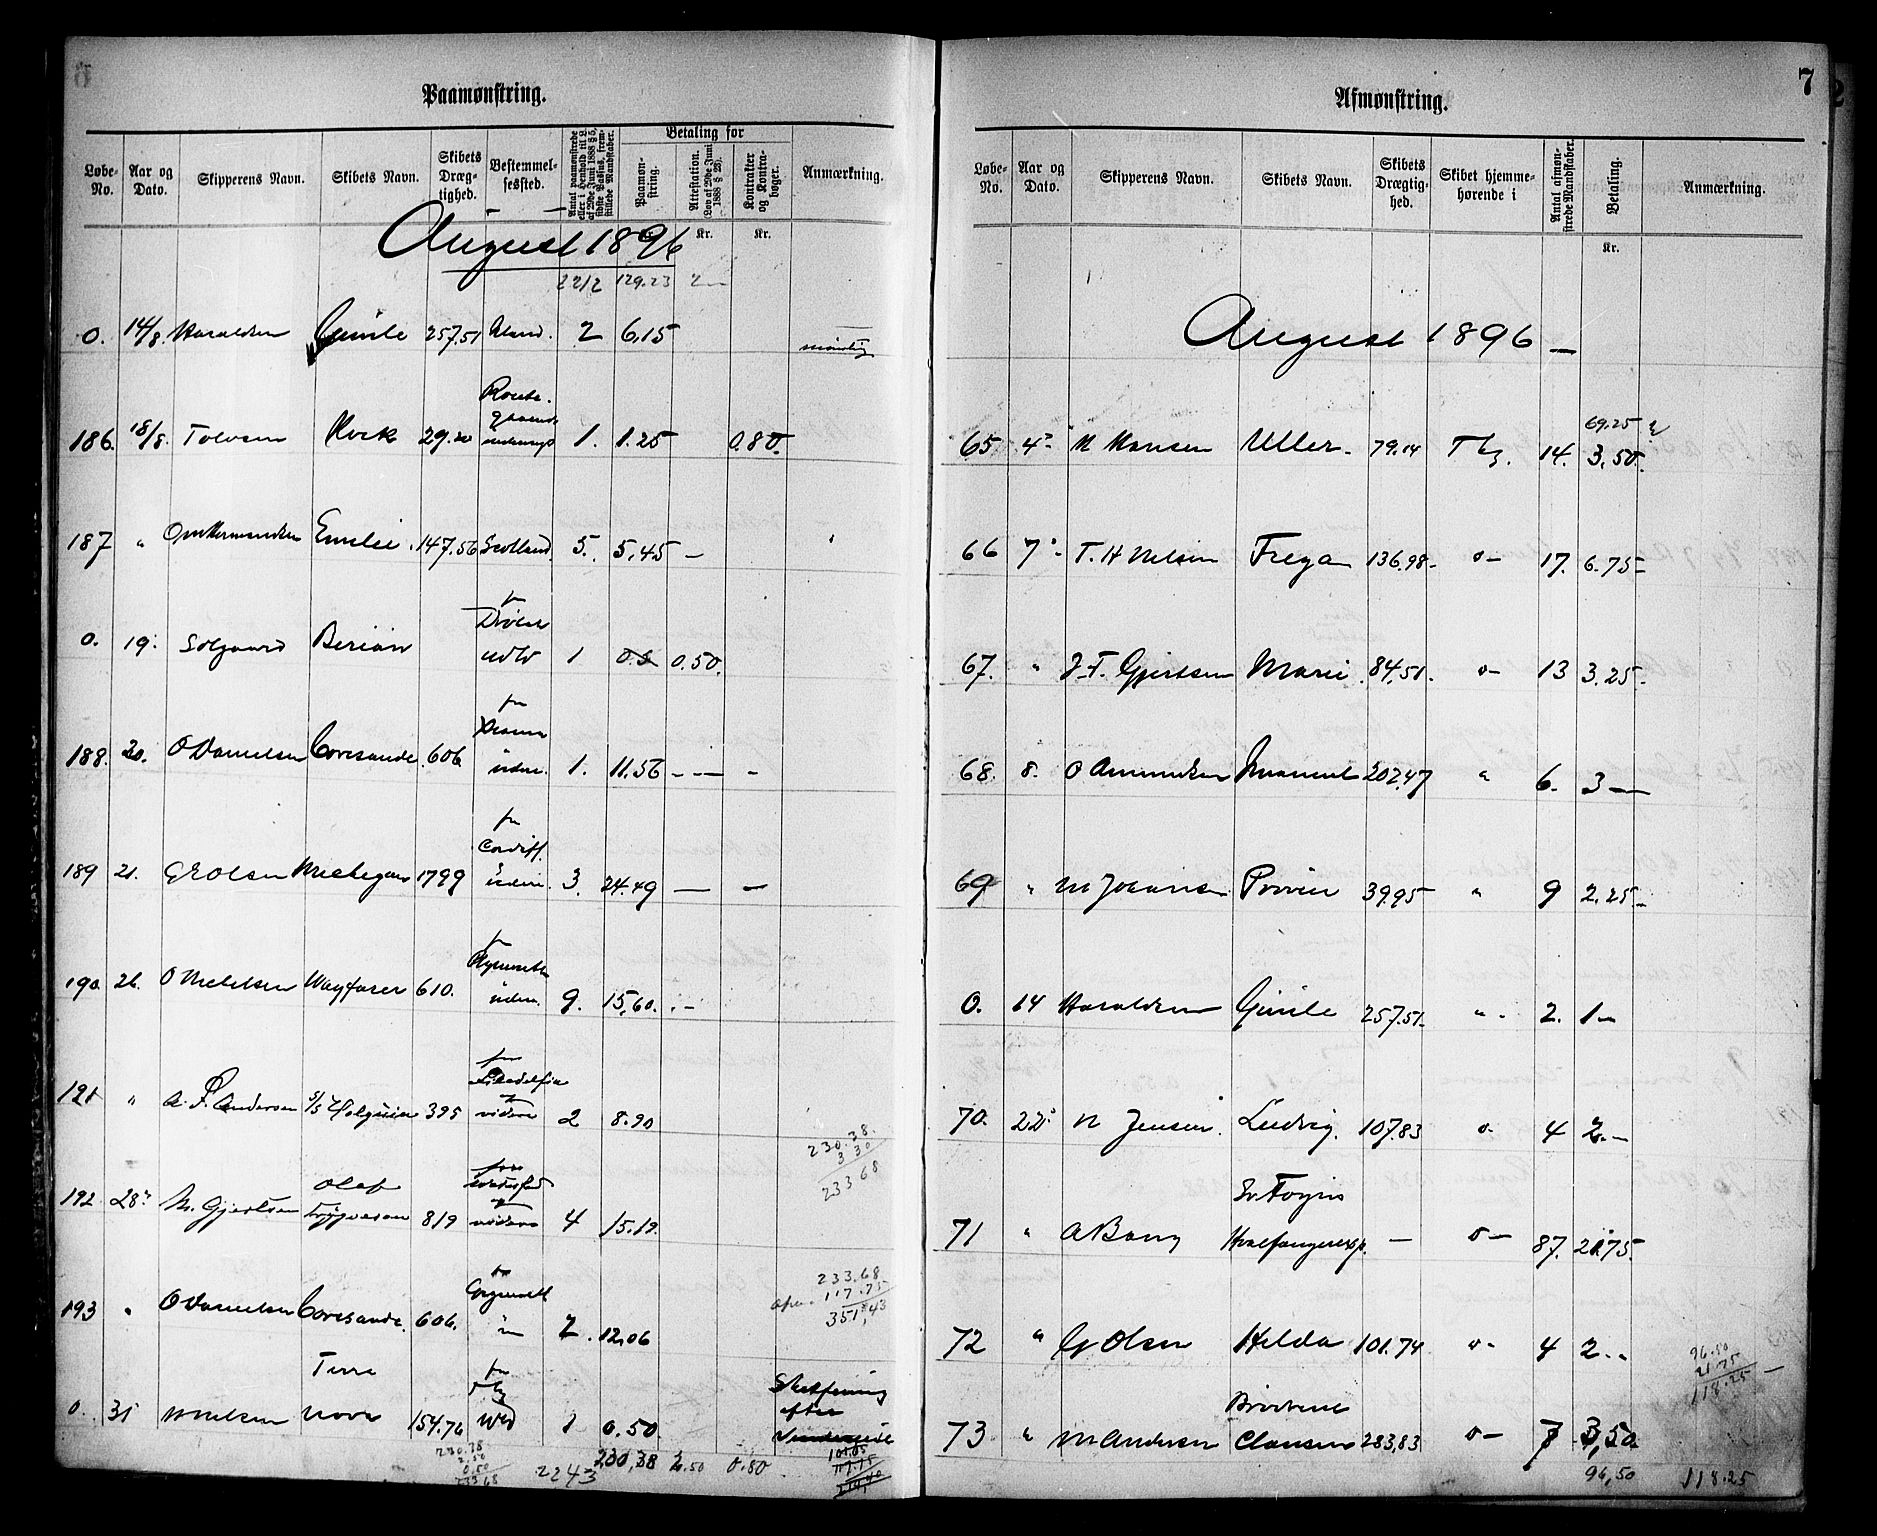 Paamønstring.
Løbe-No. Aar og Dato. Skipperens Navn. Skibets Navn. Skibets Dræg-tighed. Bestemmel-sessted. Antal paamønstrede eller i Henhold til L. af 29de Juni 1888 § 5, sidste Passus, frem-stillede Mandskaber. Betaling for Paamøn-string. Attestation. (Lov af 29de Juni 1888 § 23). Kontrakter og Kontra-bøger. Anmærkning.
August 1896
Kr. Kr.
2212 129.23 2—
0. 14/8. Haraldsen Gimle 257.51 2 6,15 mundtlig
186. 18/8. Tolvsen 29.20 1. 1.25 0.80.
187 " Emilie 147.56 Scotland 5. 5,45 —
0. 19. Solgaard 1 0.50.
188. 20. O Danielsen Coresande 606. fra 1. 11.56 — — —
189 21. G R Olsen Michigan 1799 fra Cardiff. 3. 24.49 — —
190 26. O Nielsen Wayfarer 610. 9. 15,60. —
191 " A. F. Andersen S/S 395 videre 2 8.90
230.38.
3 30
233 68
192 28 M. Gjertsen Olaf Trygvason 819 videre 4 15.19.
193 " O Danielsen Coresande. 606. 2. 12,06
233.68
117.75
351,43
0. 31 Nielsen Terra Nova 154.76 fra Tbg 1 0.50. efter
230.38
2.50
0.50
233 68
2243 230,38 2.50 0.80
7
Afmønstring.
Løbe-No. Aar og Dato. Skipperens Navn. Skibets Navn. Skibets Drægtig-hed. Skibet hjemme-hørende i Antal afmøn-strede Mandskaber. Betaling. Anmærkning.
Kr.
August 1896 —
69.25
65 4 M Hansen Uller. 79.14 Tbg. 14. 3,50.
66 7 T. H Nilsen Freya 136.98. o— 17. 6.75
67. " J. F. Gjertsen Marie 84,51. o— 13 3.25.
68. 8. O Amundsen 202.47 " 6. 3 —
69 " M Johansen 39.95 " 9 2.25
0. 14 Haraldsen Gimle 257.51. " 2. 1 —
70. 22 N Jensen. Ludvig. 107.83 o- 4 2.—
71 " A Bang Sv Foyns Hvalfangerexp. — o— 87. 21.75.
72 " G Olsen Helda 101.74 o- 4 2..
96.50
21.75
118.25 —
73 " M Andersen Brødrene Clausen 283,83 o— 7 3,50
96,50 118.25